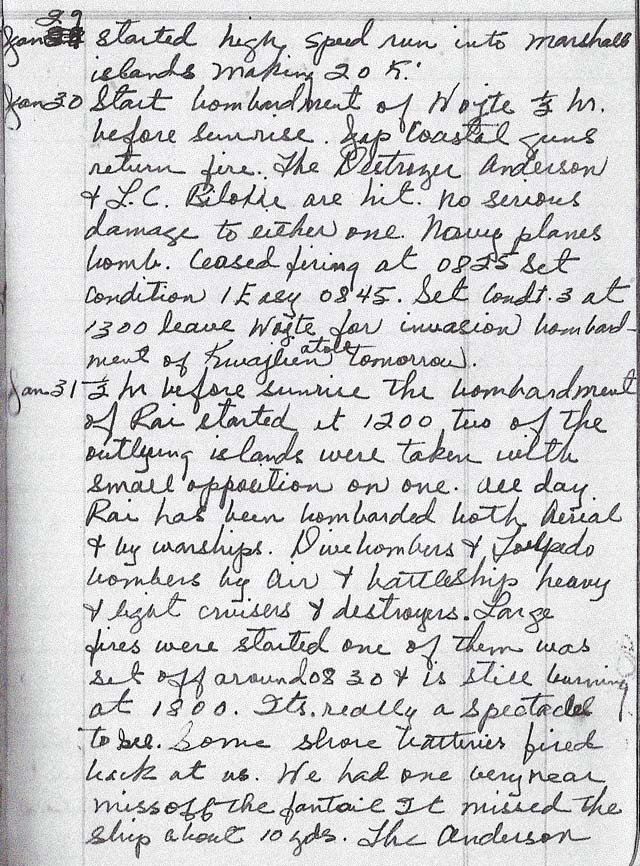 29
Jan started high speed run into marshall
islands making 20 K.
Jan 30 Start bombardment of Wojte ½ hr.
before sunrise. Jap Coastal guns
return fire. The Destroyer Anderson
& L.C. Biloxie are hit. no serious
damage to either one. Navy planes
bomb. Ceased firing at 0825 set
condition 1 Easy 0845. Set Condt. 3 at
1300 leave Wojte for invasion bombard-
ment of Kwajlien atoll tomorrow.
Jan 31 ½ hr before sunrise the bombardment
of Rai started at 1200 two of the
outlying islands were taken with
small opposition on one. all day
Rai has been bombarded both Aerial
& by warships. Divebombers & Torpedo
bombers by air & battleship heavy
& light cruisers & destroyers. Large
fires were started one of them was
set off around 0830 & is still burning
at 1800. Its. really a spectacle
to see. Some shore batteries fired
back at us. We had one very near
miss off the fantail It missed the
ship about 10 yds. The Anderson